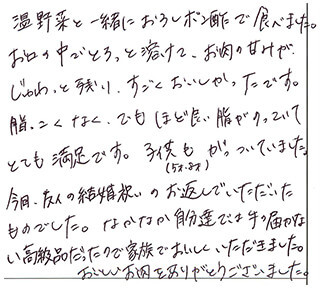 温野菜と一緒におろしポン酢で食べました。
お口の中でとろっと溶けて、お肉の甘みが
じゅわっと残り、すごくおいしかったです。
脂っこくなく、でもほど良い脂がのっていて
とても満足です。子供もがっついていました
(5才.8才)
今回、友人の結婚祝いのお返しでいただいた
ものでした。なかなか自分達では手の届かな
い高級品だったので家族でおいしくいただきました。
おいしいお肉をありがとうございました。